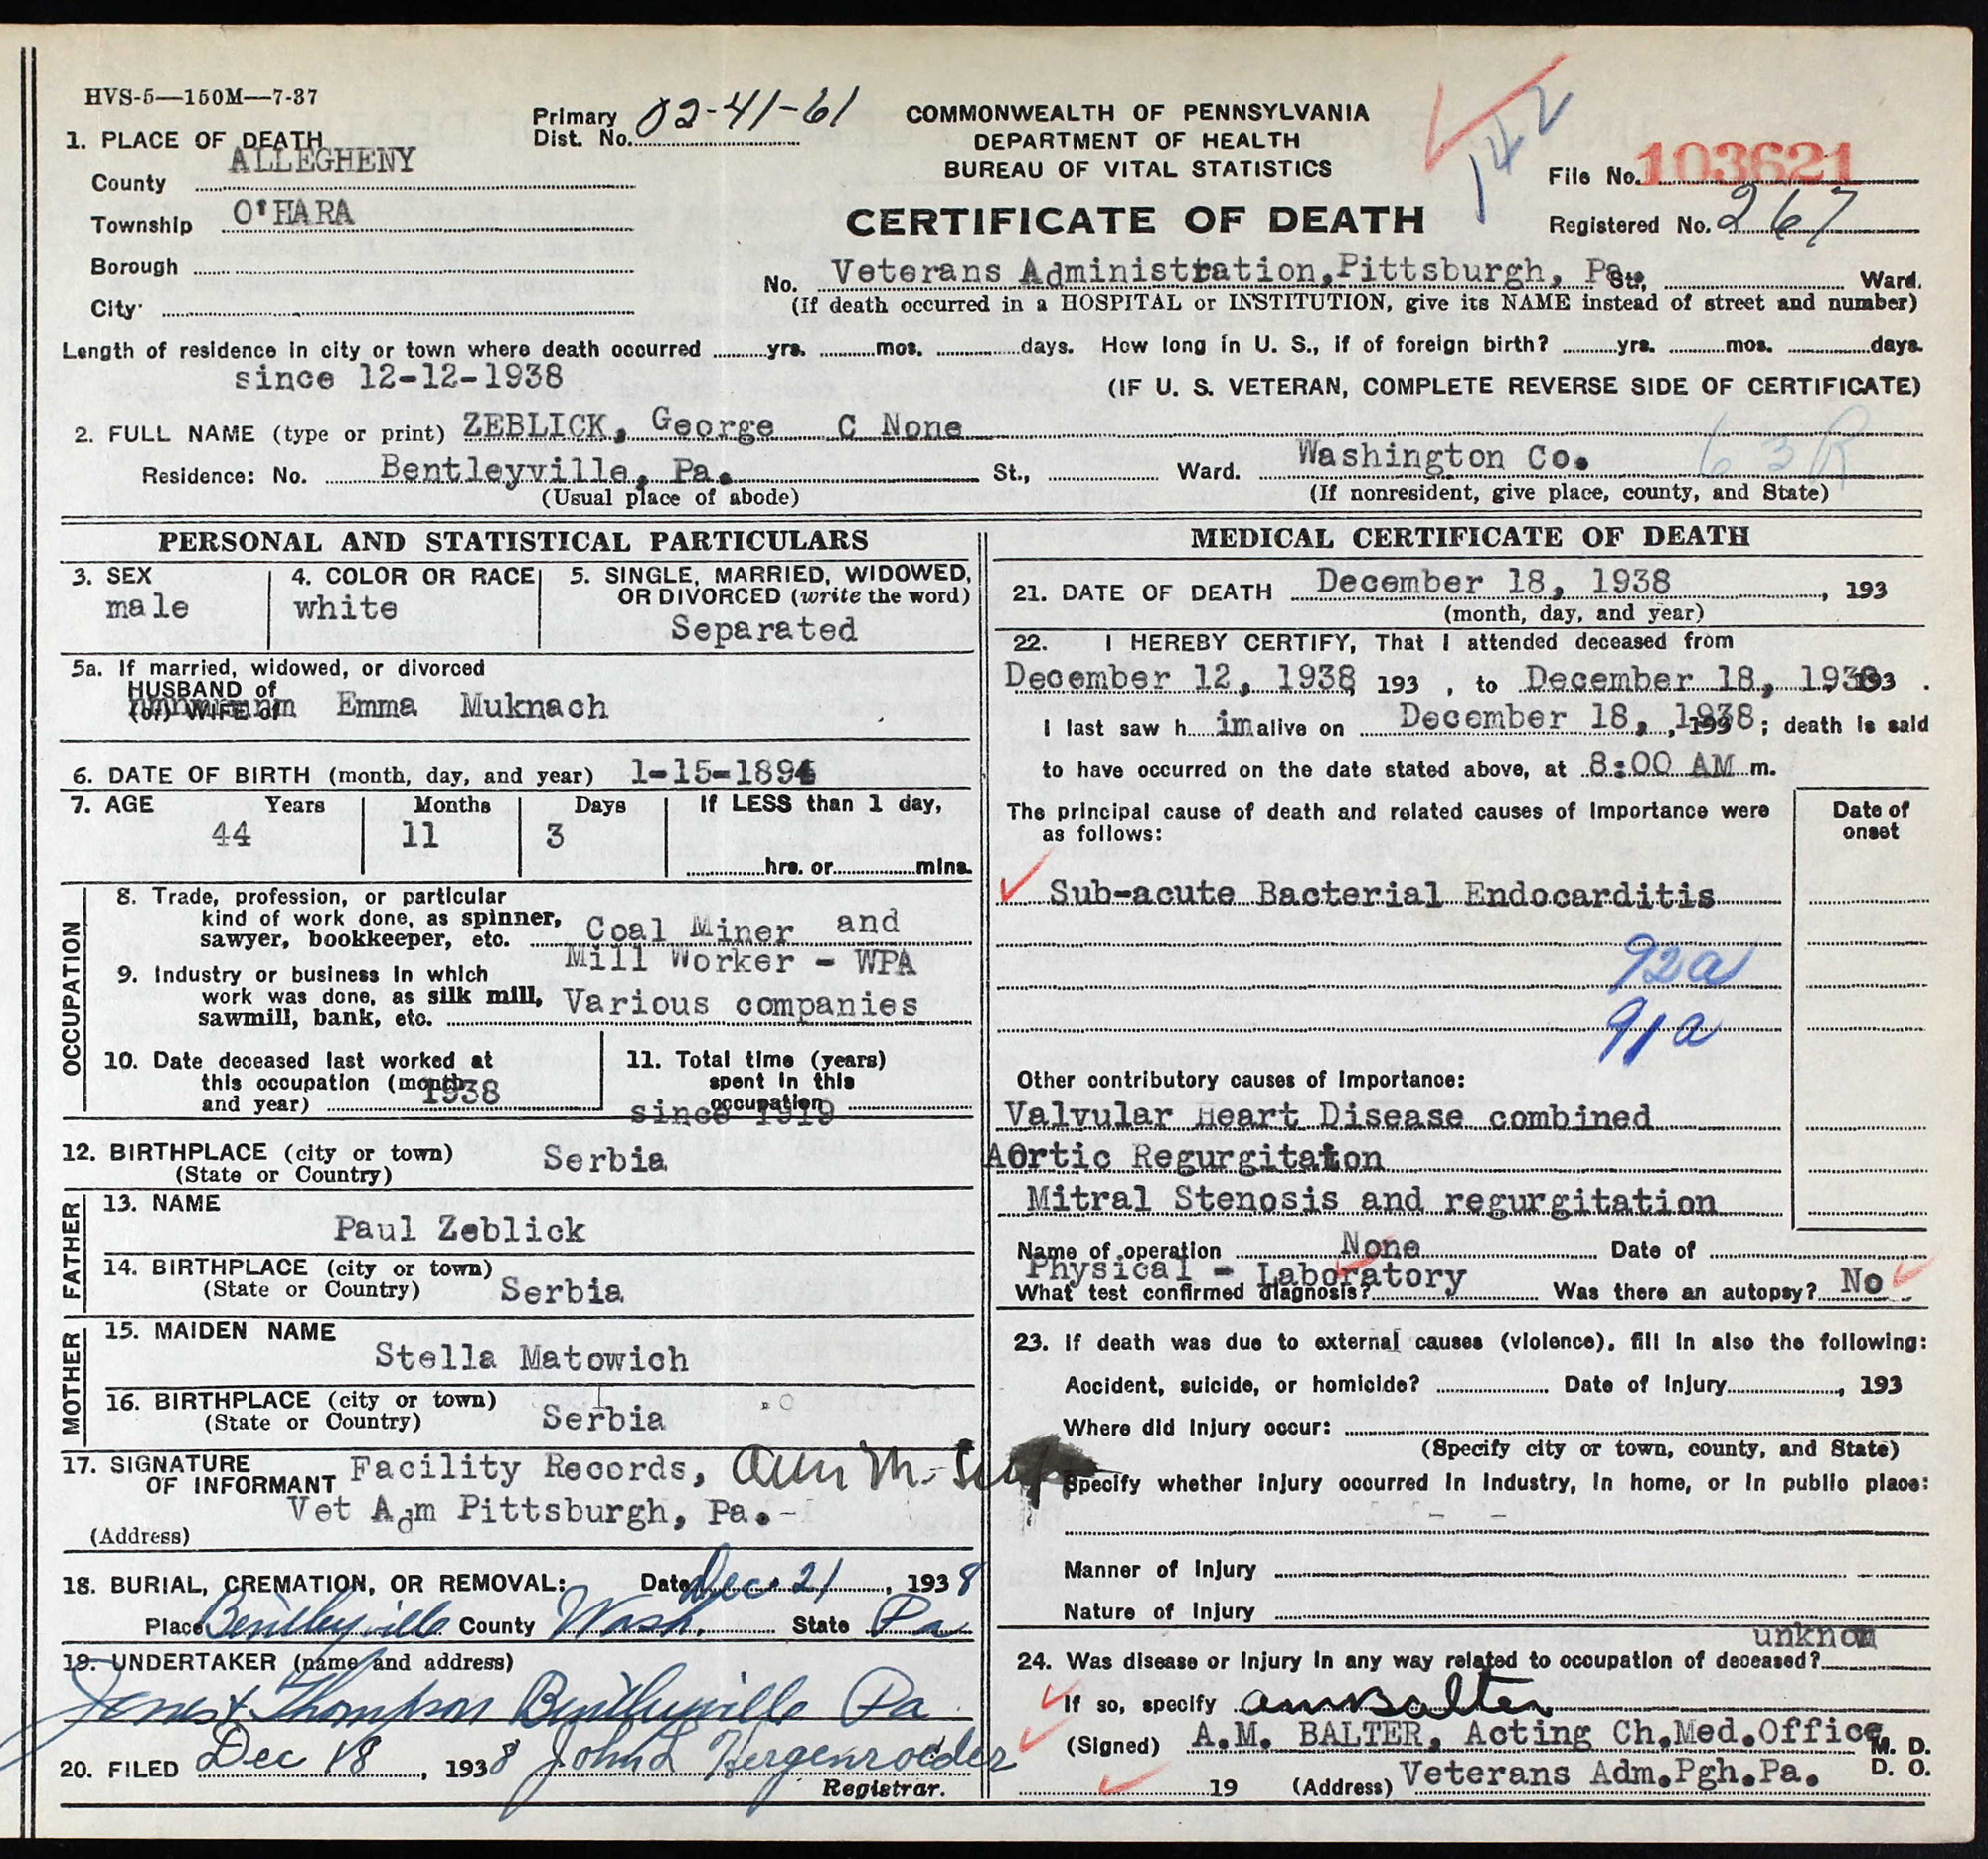 HVS-5—150M—7-37
1. PLACE OF DEATH
County ALLEGHENY
Township O'HARA
Borough
City
Primary Dist. No. 02-41-61
COMMONWEALTH OF PENNSYLVANIA
DEPARTMENT OF HEALTH
BUREAU OF VITAL STATISTICS
CERTIFICATE OF DEATH
142
File No. 103621
Registered No. 267
No. Veterans Administration, Pittsburgh, Pa. St., Ward.
(If death occurred in a HOSPITAL or INSTITUTION, give its NAME instead of street and number)
Length of residence in city or town where death occurred yrs. mos. days. How long in U. S., if of foreign birth? yrs. mos. days.
since 12-12-1938
(IF U. S. VETERAN, COMPLETE REVERSE SIDE OF CERTIFICATE)
2. FULL NAME (type or print) ZEBLICK, George C None
Residence: No. Bentleyville, Pa. St., Ward. Washington Co. 63R
(Usual place of abode) (If nonresident, give place, county, and State)
PERSONAL AND STATISTICAL PARTICULARS
3. SEX
male
4. COLOR OR RACE
white
5. SINGLE, MARRIED, WIDOWED,
OR DIVORCED (write the word)
Separated
5a. If married, widowed, or divorced
HUSBAND of
(or) WIFE of Emma Muknach
6. DATE OF BIRTH (month, day, and year) 1-15-1894
7. AGE Years Months Days If LESS than 1 day,
44 11 3
hrs. or mins.
OCCUPATION
8. Trade, profession, or particular
kind of work done, as spinner,
sawyer, bookkeeper, etc. Coal Miner and
Mill Worker - WPA
9. Industry or business in which
work was done, as silk mill,
sawmill, bank, etc. Various companies
10. Date deceased last worked at
this occupation (month
and year) 1938
11. Total time (years)
spent in this
occupation
since 1919
12. BIRTHPLACE (city or town) Serbia
(State or Country)
FATHER
13. NAME
Paul Zeblick
14. BIRTHPLACE (city or town)
(State or Country) Serbia
MOTHER
15. MAIDEN NAME
Stella Matowich
16. BIRTHPLACE (city or town)
(State or Country) Serbia
17. SIGNATURE
OF INFORMANT Facility Records, Ann M.
Vet Adm Pittsburgh, Pa.-
(Address)
18. BURIAL, CREMATION, OR REMOVAL: Date Dec. 21, 1938
Place Bentleyville County Wash. State Pa
19. UNDERTAKER (name and address)
Jones & Thompson Bentleyville Pa
20. FILED Dec 18, 1938 John L Hergenroeder
Registrar.
MEDICAL CERTIFICATE OF DEATH
21. DATE OF DEATH December 18, 1938, 193
(month, day, and year)
22. I HEREBY CERTIFY, That I attended deceased from
December 12, 1938 193 , to December 18, 1938 193 .
I last saw h im alive on December 18, 1938, 193; death is said
to have occurred on the date stated above, at 8:00 AM m.
The principal cause of death and related causes of importance were
as follows:
Date of
onset
Sub-acute Bacterial Endocarditis
92a
91a
Other contributory causes of importance:
Valvular Heart Disease combined
AOrtic Regurgitaion
Mitral Stenosis and regurgitation
Name of operation None Date of
Physical - Laboratory
What test confirmed diagnosis? Was there an autopsy? No
23. If death was due to external causes (violence), fill in also the following:
Accident, suicide, or homicide? Date of Injury , 193
Where did Injury occur:
(Specify city or town, county, and State)
Specify whether injury occurred in Industry, in home, or in public place:
Manner of Injury
Nature of Injury
unknon
24. Was disease or Injury in any way related to occupation of deceased?
If so, specify AM Balter
(Signed) A.M. BALTER, Acting Ch.Med.Office M. D.
D. O.
19 (Address) Veterans Adm.Pgh.Pa.